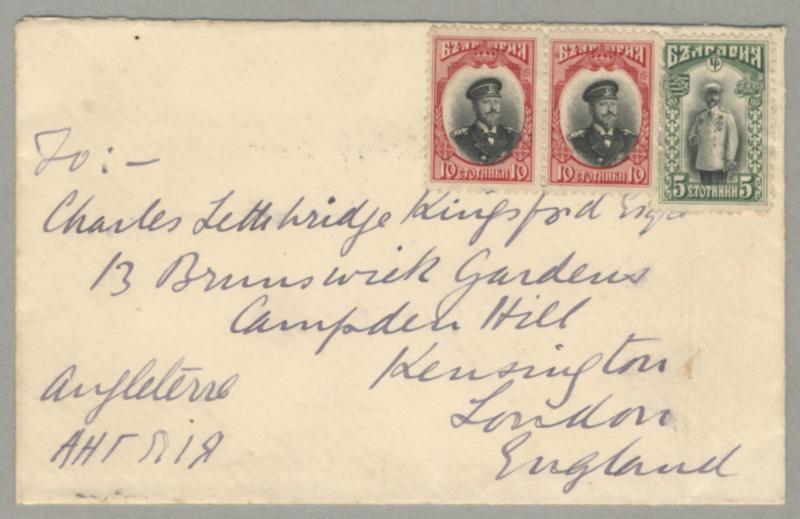 БЪЛГАРИЯ БЪЛГАРИЯ БЪЛГАРИЯ
10 СТОТИНКИ 10 10 СТОТИНКИ 10 5 СТОТИНКИ 5
To:-
Charles Lethbridge Kingsford Esqr
13 Brunswick Gardens
Campden Hill
Kensington
London
England
Angleterre
АНГЛІЯ